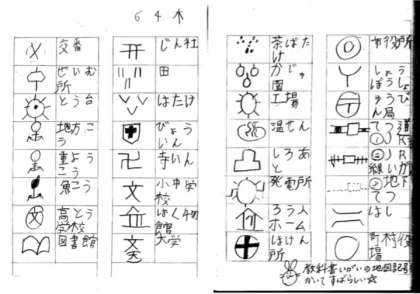 6 4 木
交番
ぜいむ
所
とう台
地方こ
う
重よう
こう
魚こう
高とう
学校
図書館
じん社
田
はたけ
びょう
いん
寺いん
文
小中学
校
はく物
館
文
大学
茶ばた
け
かじゅ
園
工場
温せん
しろあ
と
発電所
ろう人
ホーム
ほけん
所
市役所
しょう
ぼうしょ
ゆうび
ん局
てつ道
①JR
②JR
線いが
②地下
てつ
はし
町村役
場
教科書いがいの地図記号
かいてすばらしい